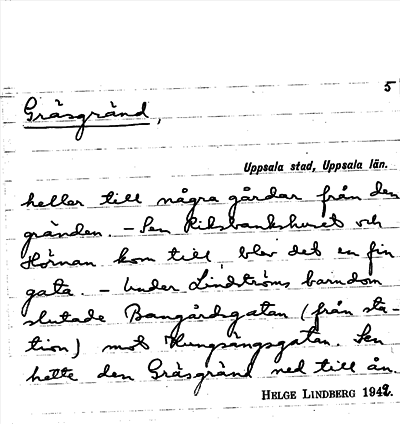 5
Gräsgränd,
Uppsala stad, Uppsala län.
heller till några gårdar från den
gränden. – Sen Riksbankshuset och
Hörnan kom till blev det en fin
gata. – Under Lindströms barndom
slutade Bangårdsgatan (från sta-
tion) mot Kungsängsgatan. Sen
hette den Gräsgränd ned till ån.
HELGE LINDBERG 1942.